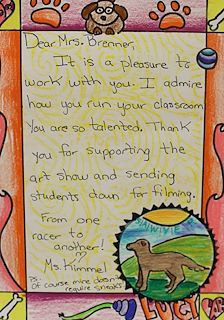 Dear Mrs. Brenner,
It is a pleasure to
work with you. I admire
how you run your classroom
You are so talented. Thank
you for supporting the
art show and sending
students down for filming.
From one
racer to
another!
Ms. Kimmel
PS:
of course mine doesn't
require sneaks
LUCY